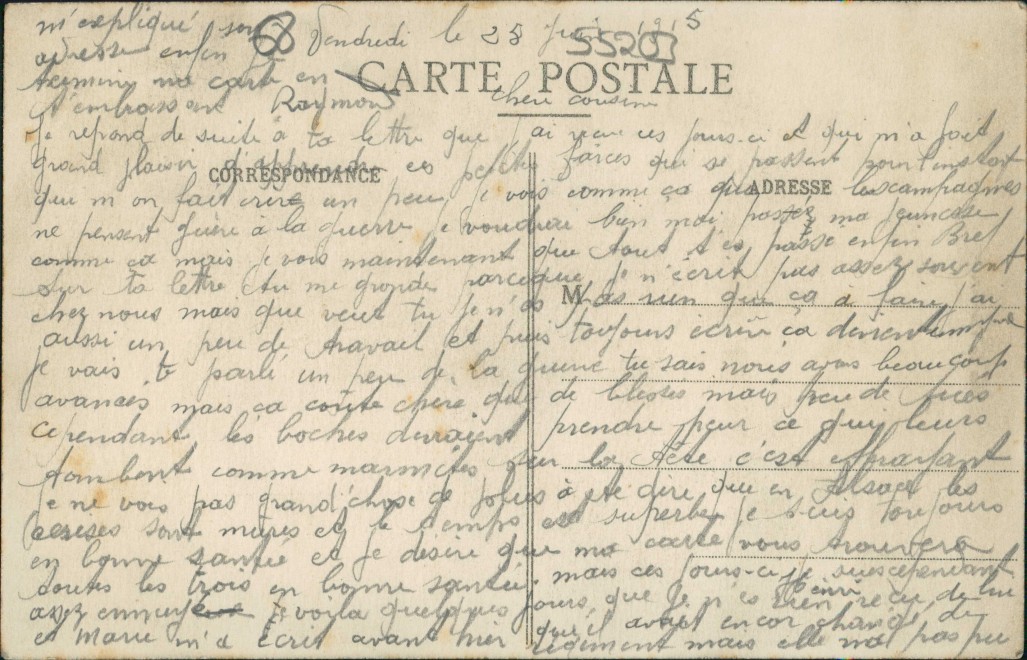 m'expliqué son
adresse enfin je
termine ma carte en
t'embrassant Raymond
68 Vendredi le 25 Juin 1915
55202
CARTE POSTALE
chère cousine
Je repond de suite à ta lettre que j'ai reçue ces jours-ci et qui m'a fait
grand plaisir d'apprendre ces petites farces qui se passent pour l'instant
CORRESPONDANCE
ADRESSE
qui m'on fait rire un peu, je vois comme ça que les campagnes
ne pensent guère à la guerre je voudrai bien moi passez ma jeunesse
comme ça mais je vois maintenant que tout s'es passé enfin Bref
sur ta lettre tu me gronde parceque je n'écrit pas assez souvent
M
chez nous mais que veut tu je n'ai pas rien que ça à faire, j'ai
aussi un peu de travail et puis toujours écrire ça devien
je vais te parlé un peu de la guerre tu sais nous avons beaucoup
avancés mais ça coûte chère que de blessés mais peu de tués
cependant les boches devraient prendre peur ce qui leurs
tombent comme marmites sur la tête c'est effrayant
je ne vois pas grand'chose de plus à te dire que en Alsace les
cerises sont mures et le temps est superbe je suis toujours
en bonne santée et je désire que ma carte vous trouvera
toutes les trois en bonne santée. mais ces jours-ci je suis cependant
assez ennuyé voila quelques jours que je n'es rien reçu de lui
Henri
et Marie m'a écrit avant hier qu'il avait encor changé de
régiment mais elle n'a pas pu